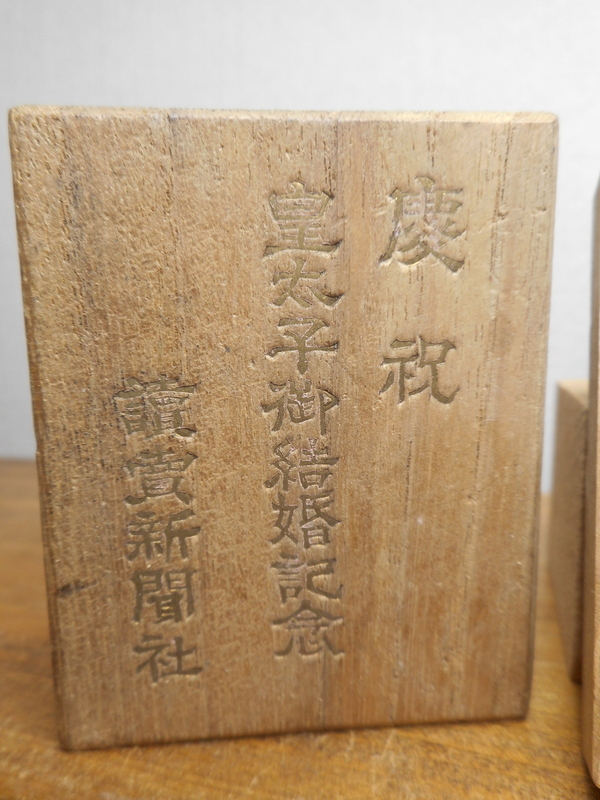 慶祝
皇太子御結婚記念
讀賣新聞社